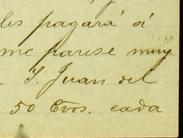 les pagará á
me parese muy
S. Juan del
50 Ctos. cada